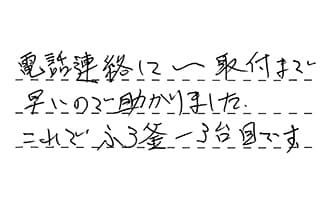 電話連絡にて〜取付まで
早いので助かりました.
これでふろ釜ー3台目です